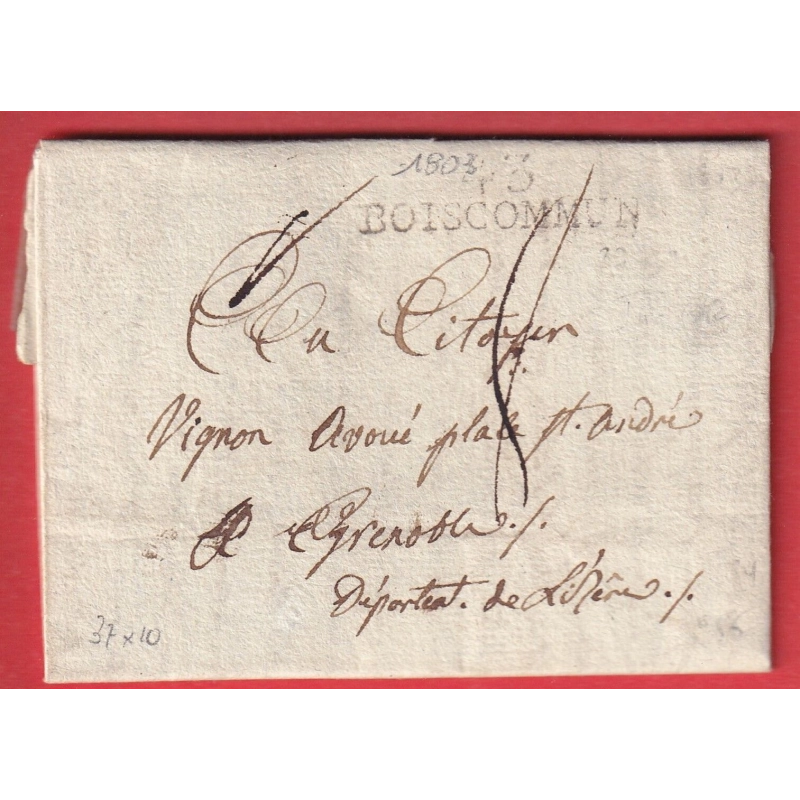 1803
BOISCOMMUN
Au Citoyen
Vignon Avoué place St. André
A Grenoble ./.
Départent. de L'isère ./.
37 x 10